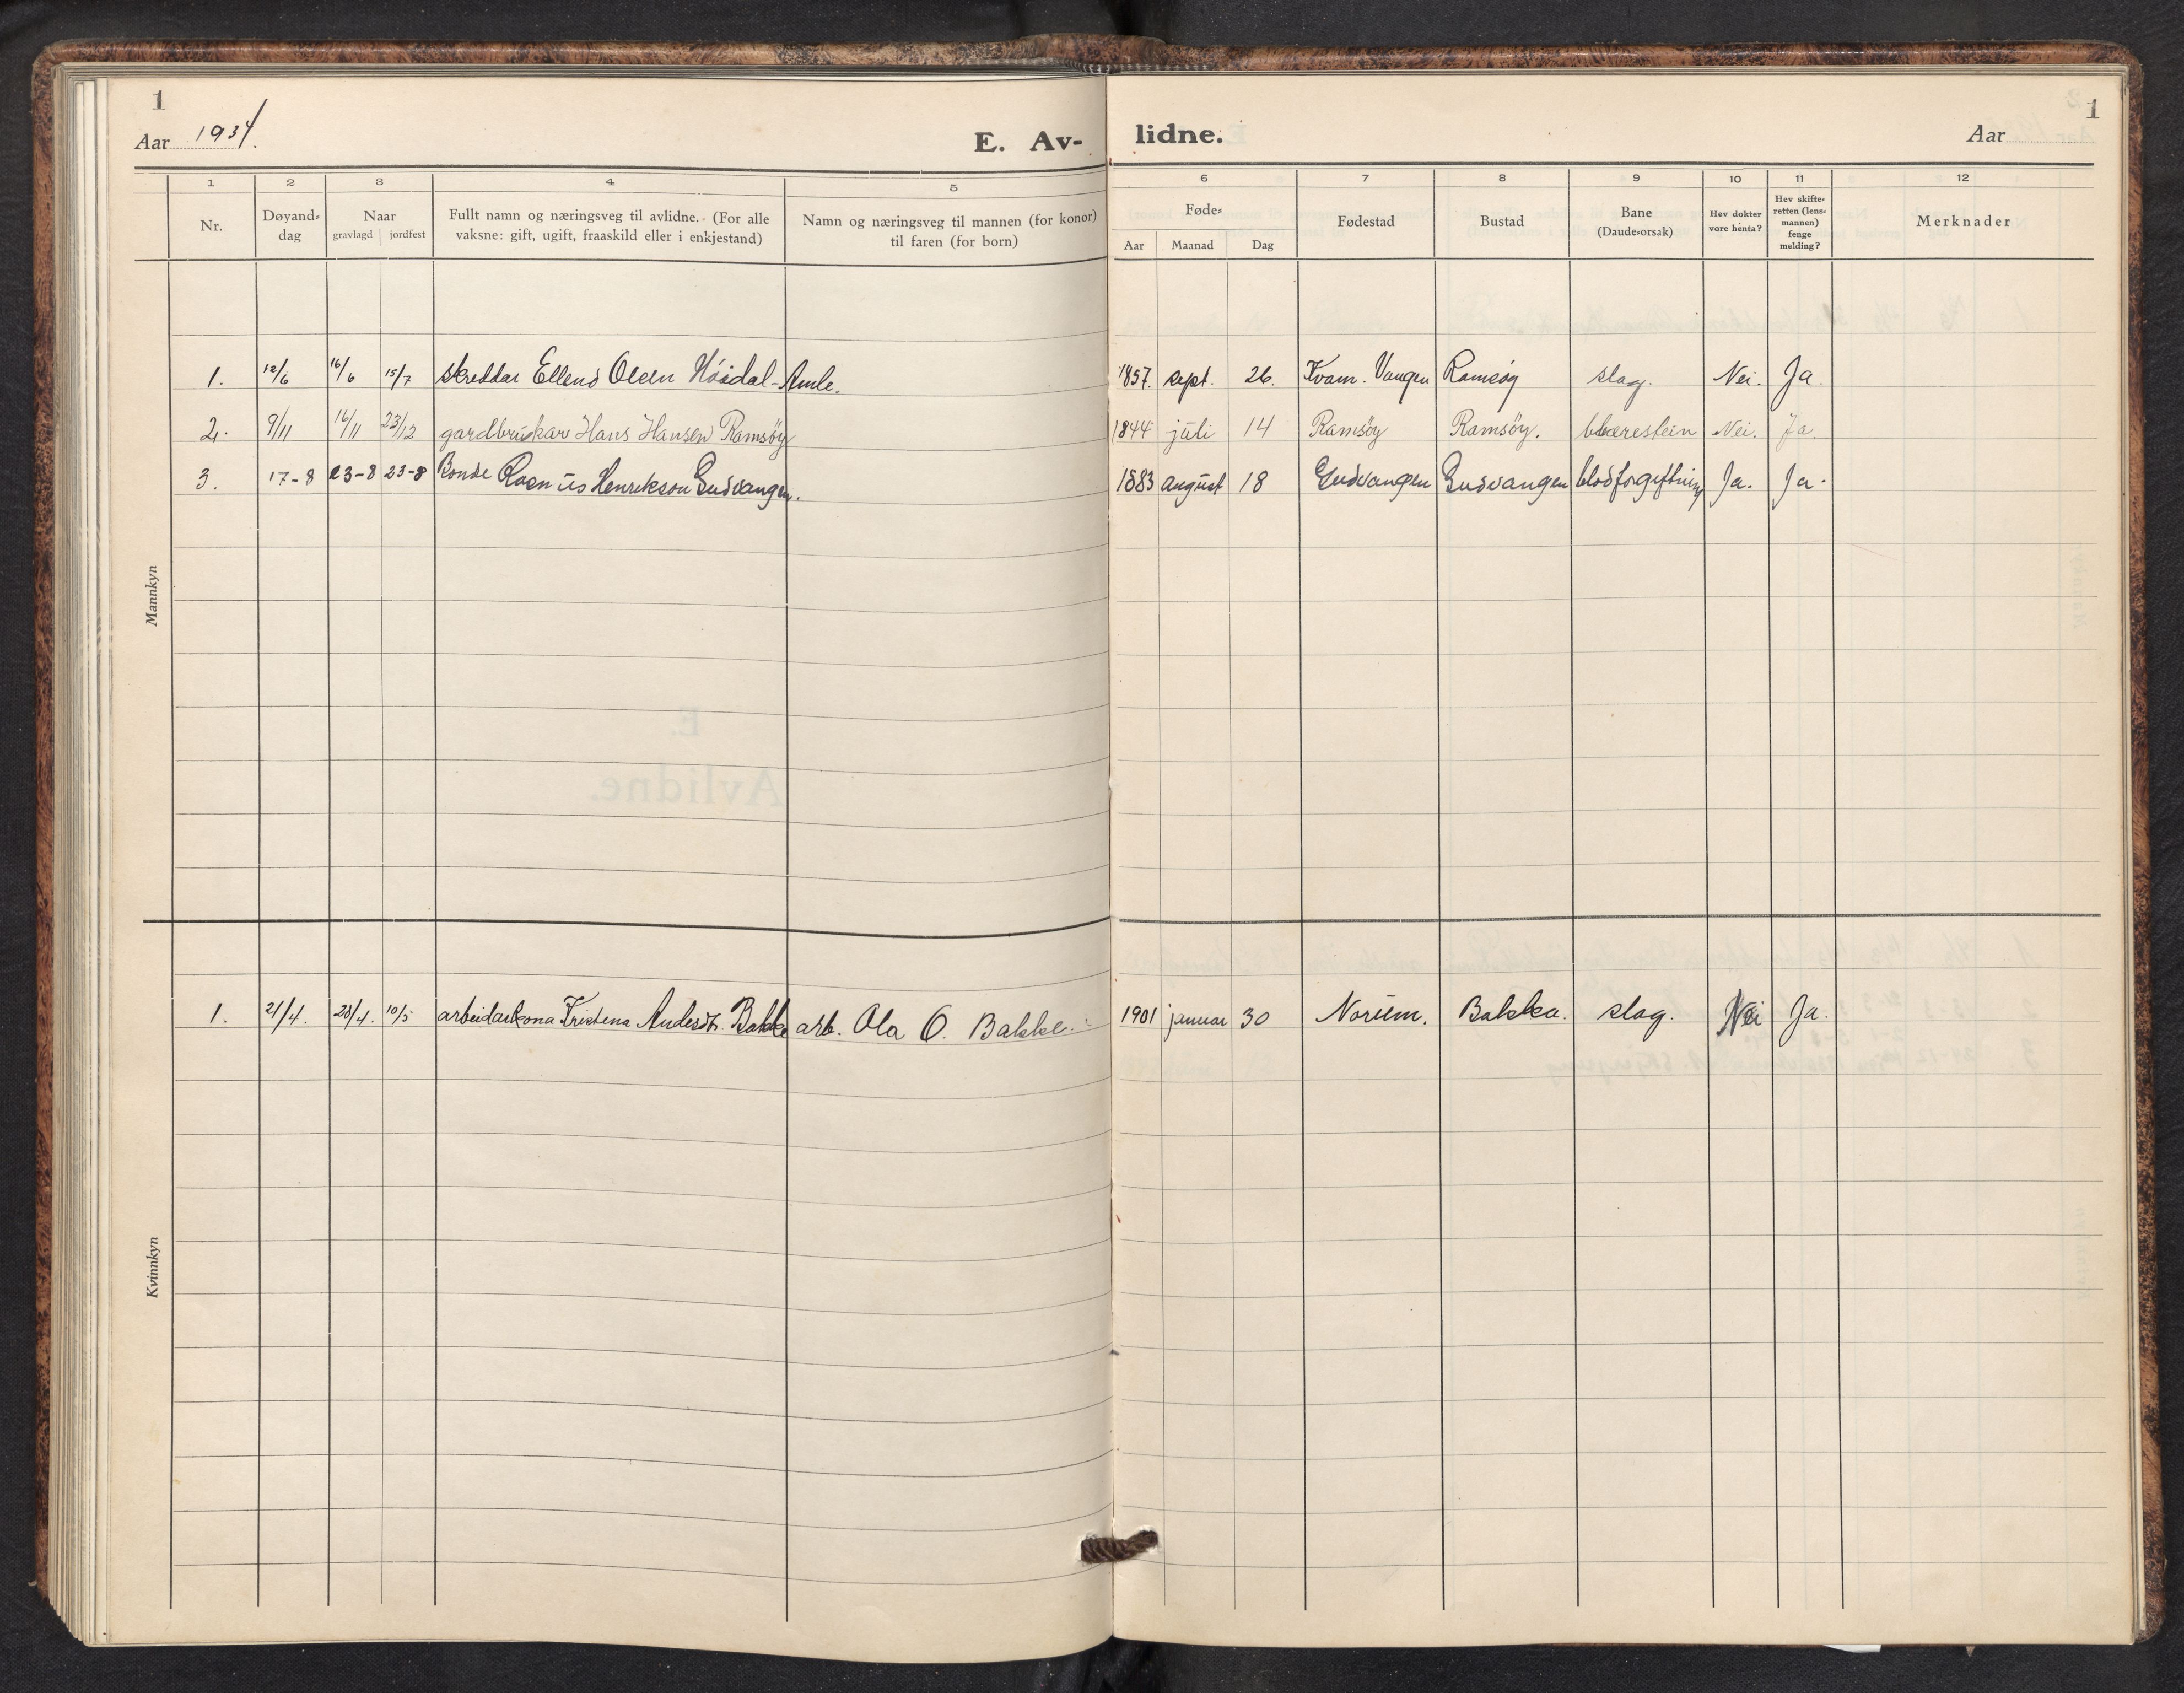 1
Aar 1934.
E. Av-
lidne.
Aar
1
1 2 3 4 5 6 7 8 9 10 11 12
Nr.
Døyand-
dag
Naar
gravlagd jordfest
Fullt namn og næringsveg til avlidne. (For alle
vaksne: gift, ugift, fraaskild eller i enkjestand)
Namn og næringsveg til mannen (for konor)
til faren (for born)
Føde-
Aar Maanad Dag
Fødestad
Bustad
Bane
(Daude-orsak)
Hev dokter
vore henta?
Hev skifte-
retten (lens-
mannen)
fenge
melding?
Merknader
Mannkyn
1. 12/6 16/6 15/7 skreddar Ellend Olsen Høidal-Amle. 1857. sept. 26. Kvam. Vangen Ramsøy slag. Nei. Ja.
2. 9/11 16/11 23/12 gardbrukar Hans Hansen Ramsöy 1844 juli 14 Ramsöy Ramsöy. blærestein Nei. Ja.
3. 17-8 23-8 23-8 Bonde Rasmus Henrikson Gudvangen. 1883 august 18 Gudvangen Gudvangen blodforgiftning Ja. Ja.
Kvinnkyn
1. 21/4. 28/4. 10/5 arbeidarkona Kristena Andersdt. Bakke arb. Ola O. Bakke. 1901 januar 30 Norum. Bakka. slag. Nei Ja.